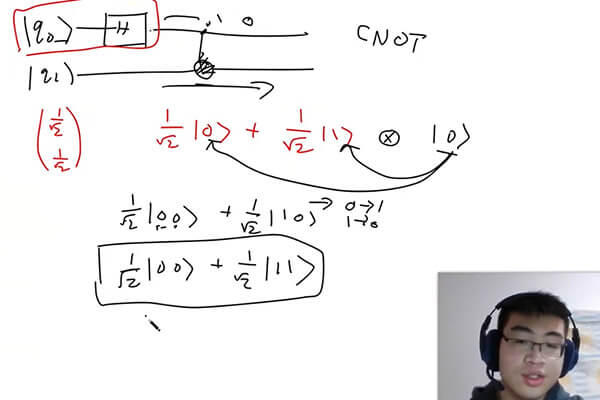 |q₀⟩ H 1 0
CNOT
|q₁⟩
(1/√2 1/√2)
1/√2 |0⟩ + 1/√2 |1⟩ ⊗ |0⟩
1/√2 |00⟩ + 1/√2 |10⟩ → 0→1
1→0
1/√2 |00⟩ + 1/√2 |11⟩